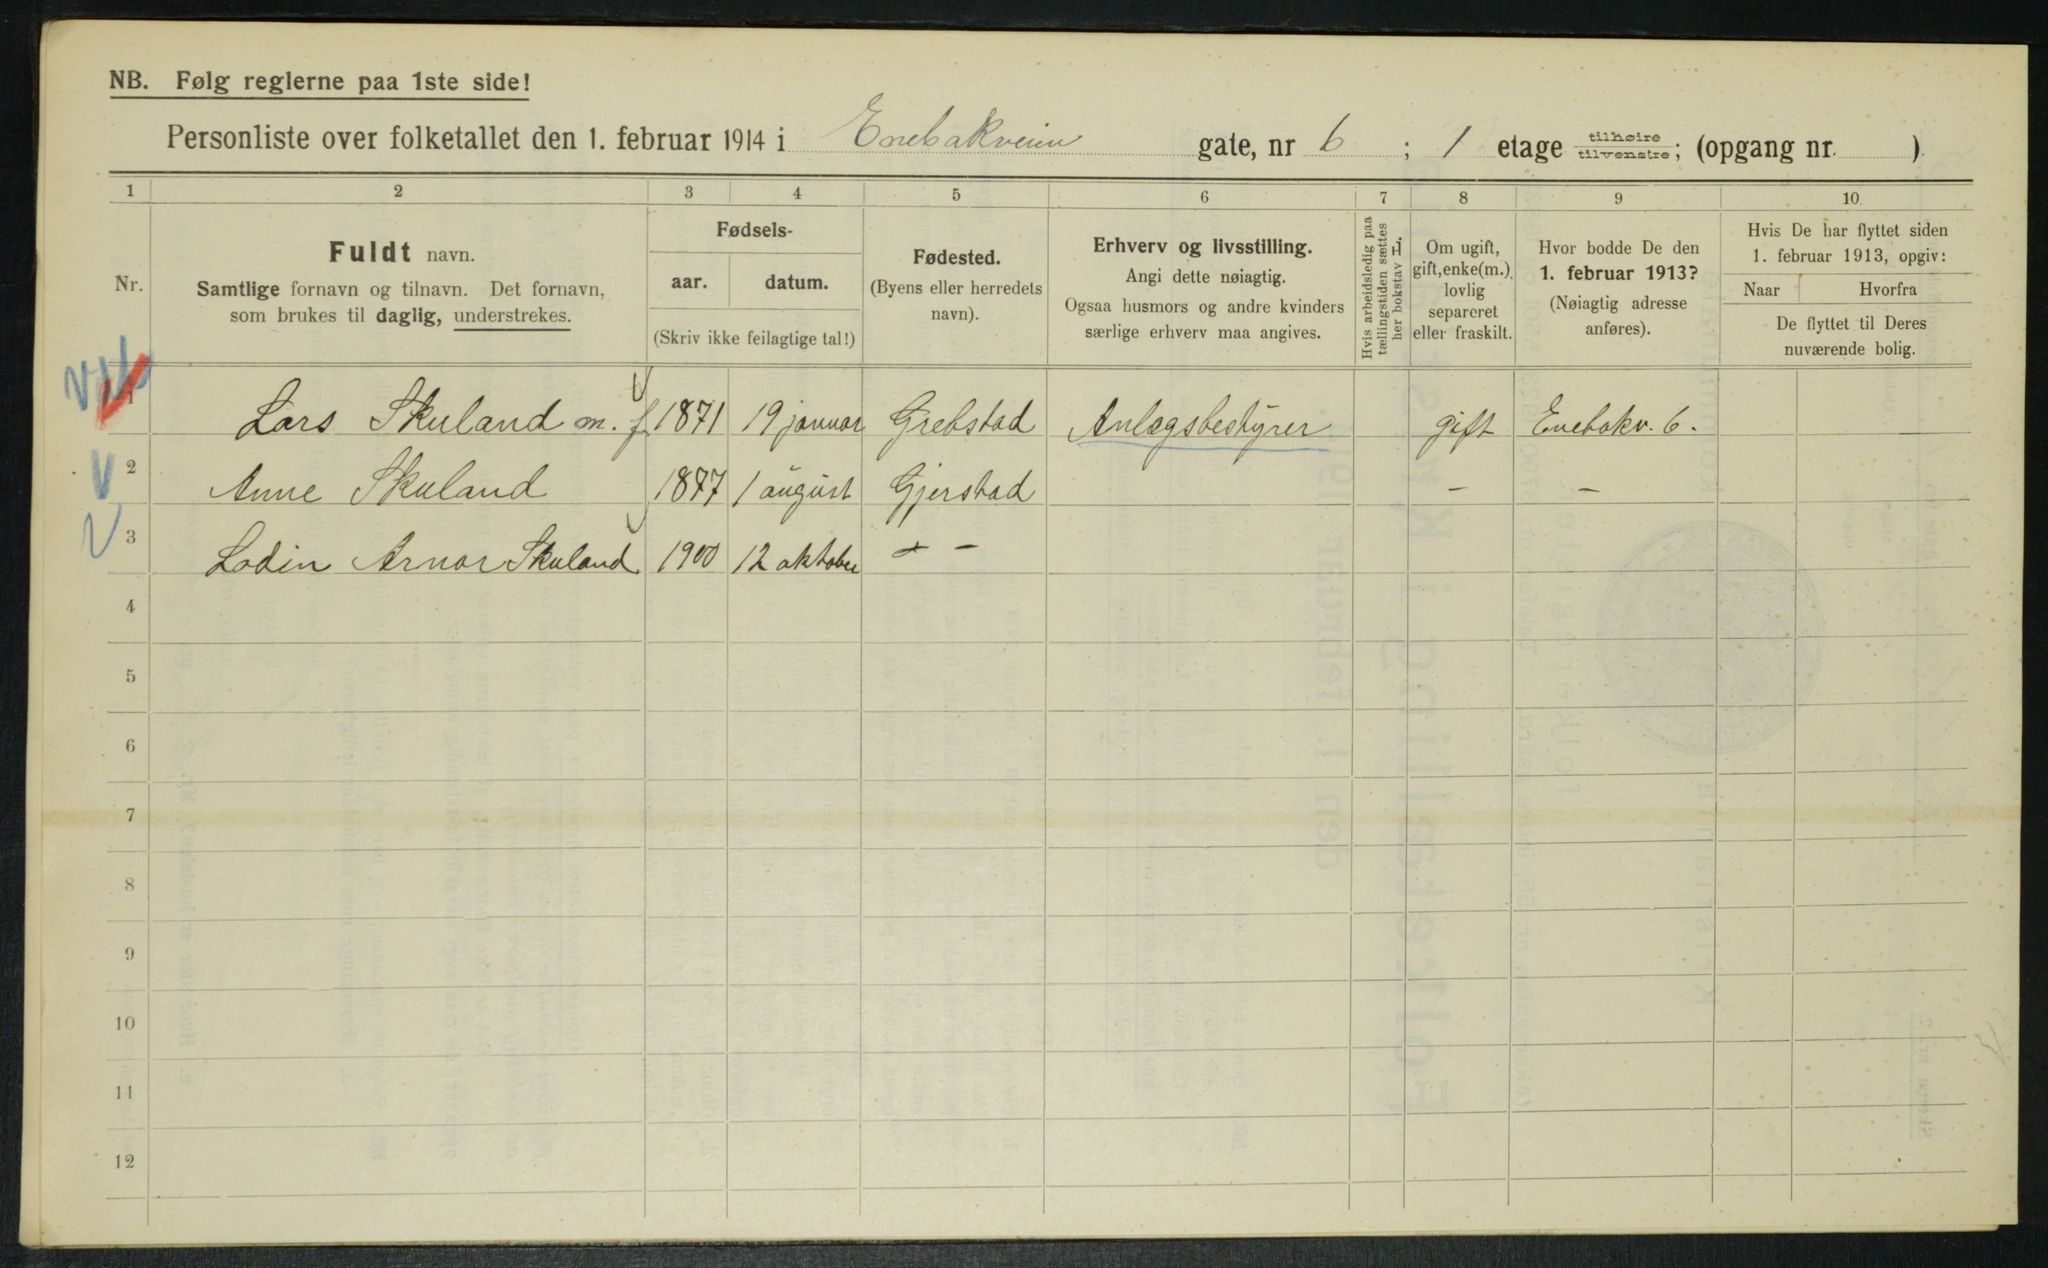 NB. Følg reglerne paa 1ste side!
Personliste over folketallet den 1. februar 1914 i Enebakveien gate, nr 6 ; 1 etage tilhøire tilvenstre; (opgang nr. )
1 2 3 4 5 6 7 8 9 10
Nr.
Fuldt navn.
Samtlige fornavn og tilnavn. Det fornavn,
som brukes til daglig, understrekes.
Fødsels-
aar. datum.
(Skriv ikke feilagtige tal!)
Fødested.
(Byens eller herredets
navn).
Erhverv og livsstilling.
Angi dette nøiagtig.
Ogsaa husmors og andre kvinders
særlige erhverv maa angives.
Hvis arbeidsledig paa
tællingstiden sættes
her bokstav
Om ugift,
gift, enke(m.),
lovlig
separeret
eller fraskilt.
Hvor bodde De den
1. februar 1913?
(Nøiagtig adresse
anføres).
Hvis De har flyttet siden
1. februar 1913, opgiv:
Naar Hvorfra
De flyttet til Deres
nuværende bolig.
1 Lars Skuland m. f. 1871 19 januar Grebstad Anlægsbestyrer gift Enebakv. 6.
2 Anne Skuland 1877 1 august Gjerstad – –
3 Lodin Arnor Skuland 1900 12 oktober – –
4
5
6
7
8
9
10
11
12